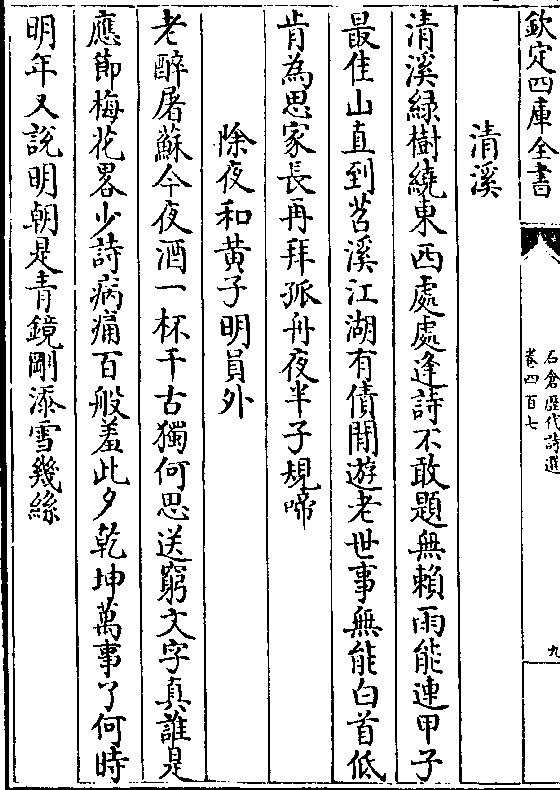 欽定四庫全書
石倉歷代詩選
卷四百七
九
清溪
清溪綠樹繞東西處處逢詩不敢題無賴雨能連甲子
最佳山直到苕溪江湖有債閒遊老世事無能白首低
肯為思家長再拜孤舟夜半子規啼
除夜和黃子明員外
老醉屠蘇今夜酒一杯千古獨何思送窮文字真誰是
應節梅花畧少詩病痛百般羞此夕乾坤萬事了何時
明年又說明朝是青鏡剛添雪幾絲